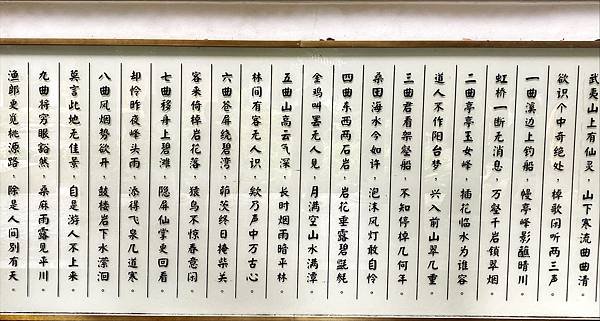 武夷山上有仙灵 山下寒流曲曲清。
欲识个中奇绝处 棹歌闲听两三声。
一曲溪边上钓船,幔亭峰影蘸晴川。
虹桥一断无消息,万壑千岩锁翠烟。
二曲亭亭玉女峰,插花临水为谁容。
道人不作阳台梦,兴入前山翠几重。
三曲君看架壑船,不知停棹几何年。
桑田海水今如许,泡沫风灯敢自怜。
四曲东西两石岩,岩花垂露碧㲯毵。
金鸡叫罢无人见,月满空山水满潭。
五曲山高云气深,长时烟雨暗平林。
林间有客无人识,欸乃声中万古心。
六曲苍屏绕碧湾,茆茨终日掩柴关。
客来倚棹岩花落,猿鸟不惊春意闲。
七曲移舟上碧滩,隐屏仙掌更回看。
却怜昨夜峰头雨,添得飞泉几道寒。
八曲风烟势欲开,鼓楼岩下水潆洄。
莫言此地无佳景,自是游人不上来。
九曲将穷眼豁然,桑麻雨露见平川。
渔郎更觅桃源路 除是人间别有天。